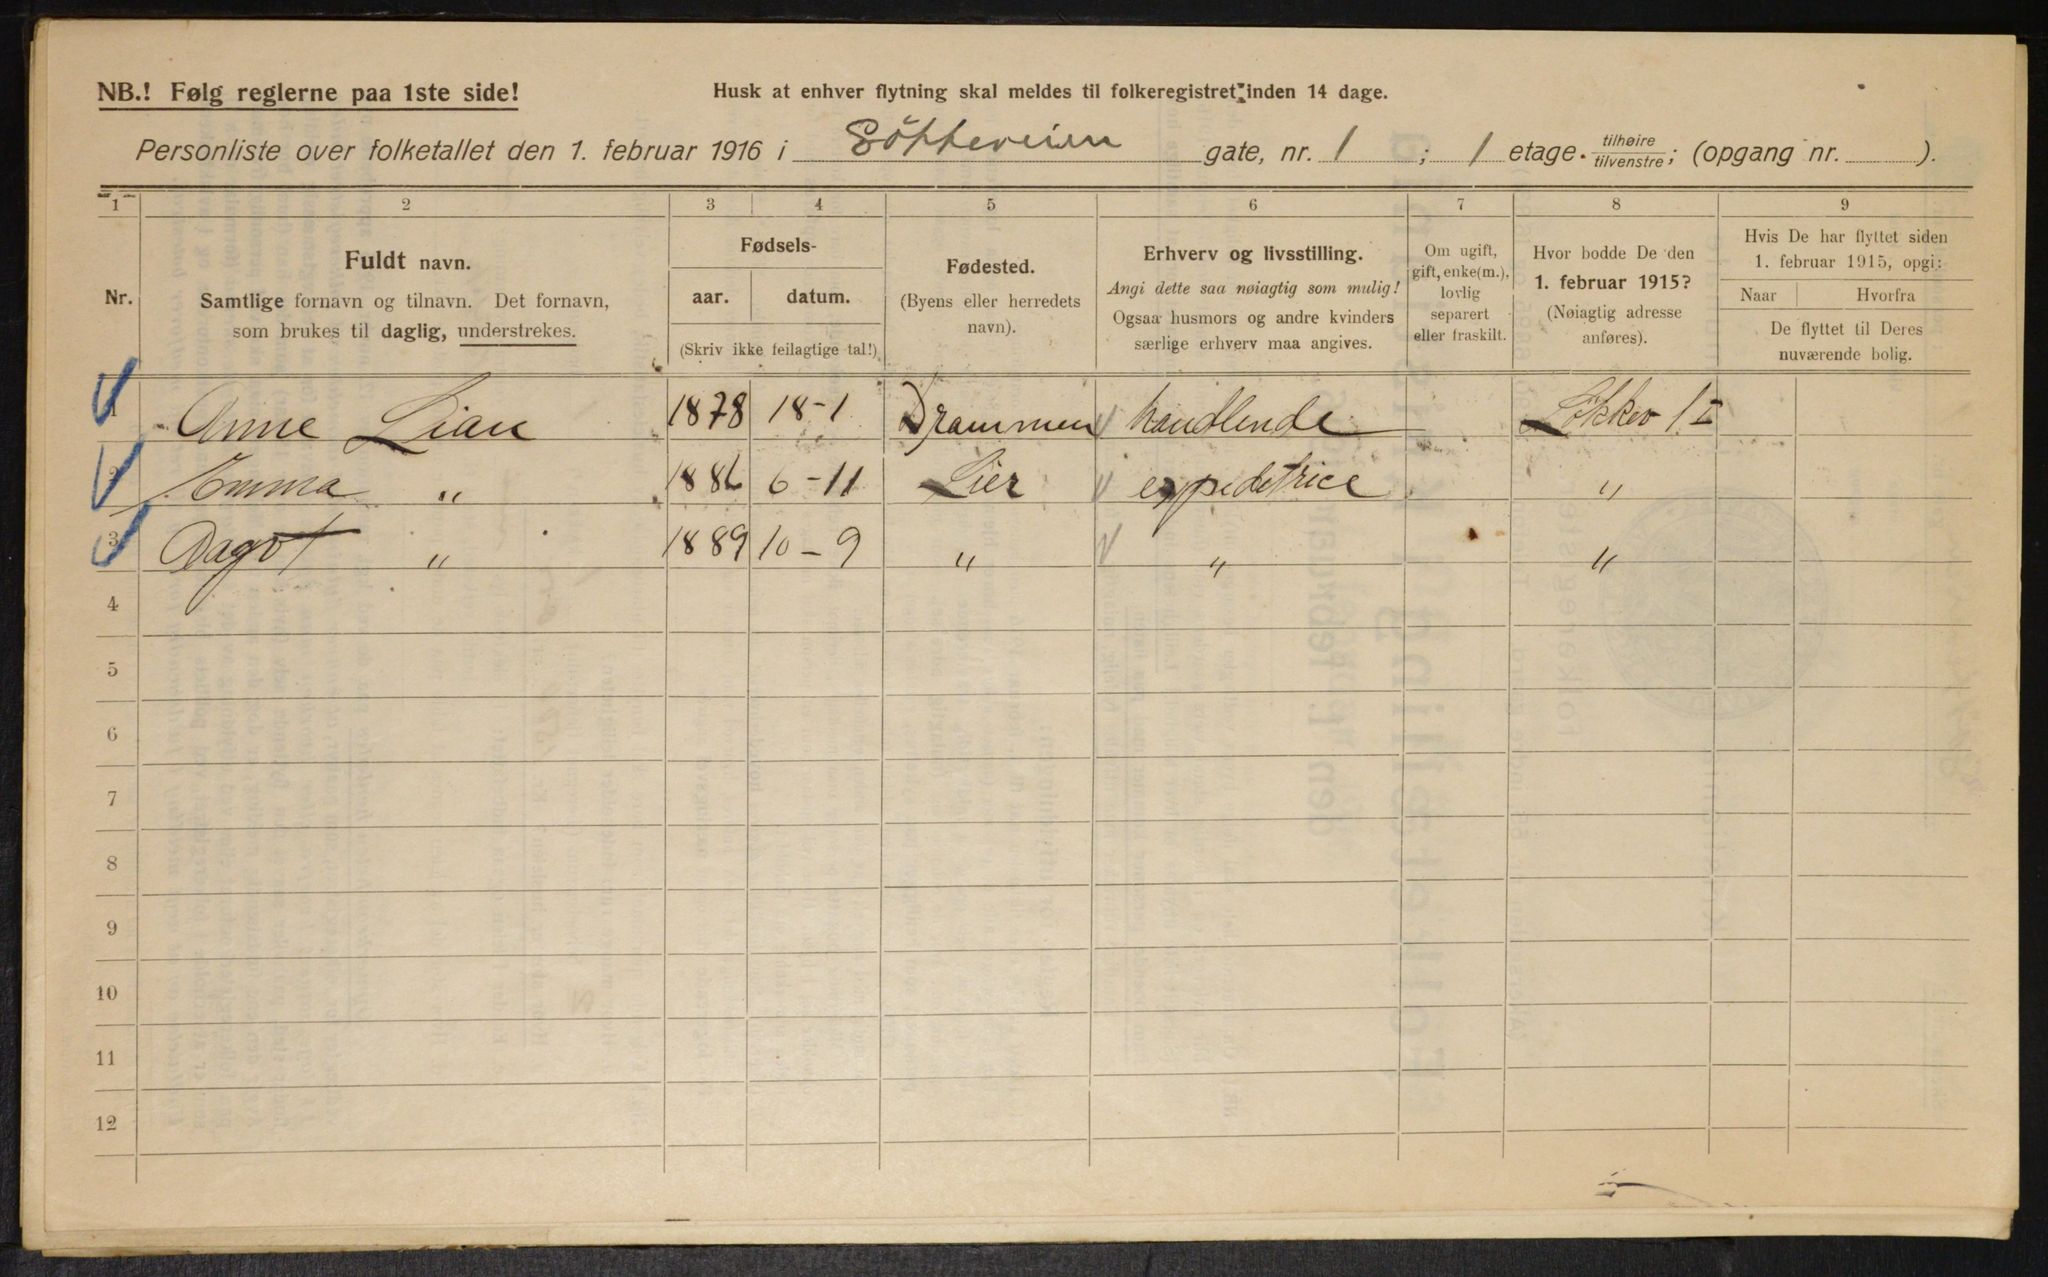 NB.! Følg reglerne paa 1ste side!
Husk at enhver flytning skal meldes til folkeregistret inden 14 dage.
Personliste over folketallet den 1. februar 1916 i Løkkeveien gate, nr. 1 ; 1 etage. tilhøire/tilvenstre; (opgang nr. ).
1 2 3 4 5 6 7 8 9
Nr.
Fuldt navn.
Samtlige fornavn og tilnavn. Det fornavn,
som brukes til daglig, understrekes.
Fødsels-
aar. datum.
(Skriv ikke feilagtige tal!)
Fødested.
(Byens eller herredets
navn).
Erhverv og livsstilling.
Angi dette saa nøiagtig som mulig!
Ogsaa husmors og andre kvinders
særlige erhverv maa angives.
Om ugift,
gift, enke(m.),
lovlig
separert
eller fraskilt.
Hvor bodde De den
1. februar 1915?
(Nøiagtig adresse
anføres).
Hvis De har flyttet siden
1. februar 1915, opgi:
Naar Hvorfra
De flyttet til Deres
nuværende bolig.
1 Anne Lian 1878 18-1 Drammen handlende Løkkev 1 I
2 Emma " 1886 6-11 Lier expeditrice "
3 Dagot " 1889 10-9 " " "
4
5
6
7
8
9
10
11
12